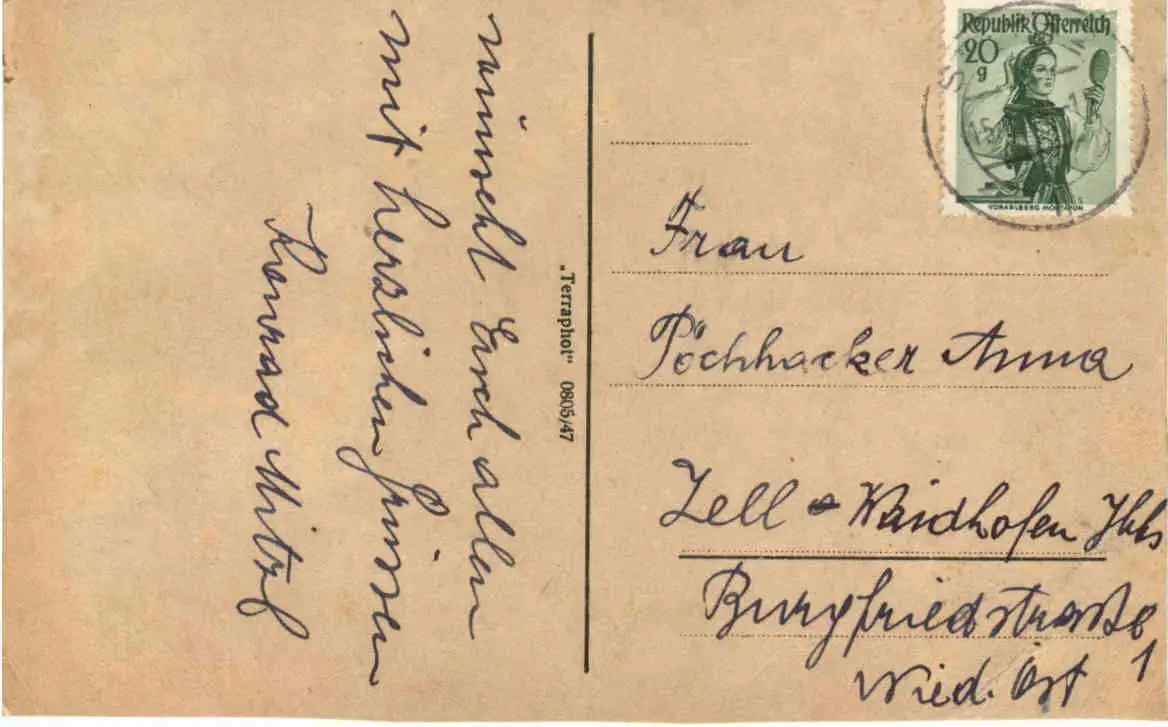 wünscht Euch allen
mit herzlichen Grüssen
Konrad
"Terraphot" 0805/47
Republik Österreich
20
g
VORARLBERG MONTAFON
Frau
Pöchhacker Anna
Zell a Waidhofen Ybbs
Burgfriedstraße 1
Wied. Öst